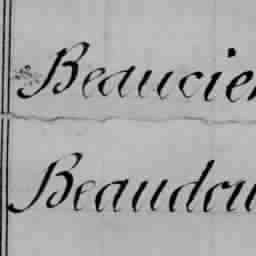 Beaucie
Beaudru